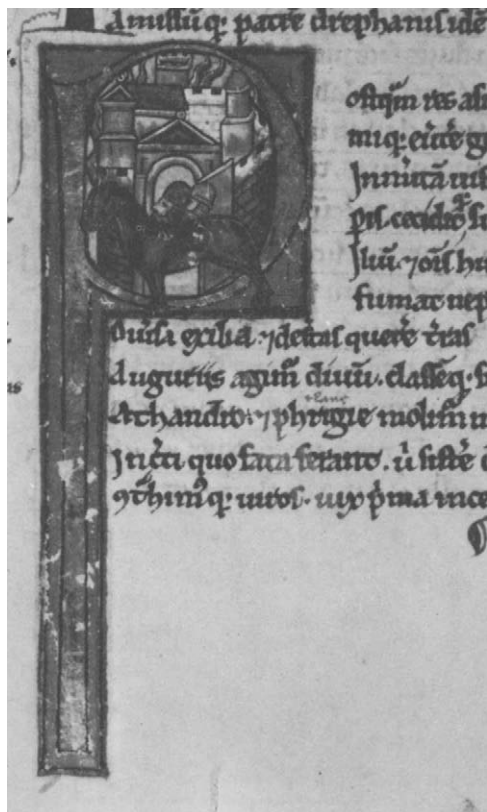 Amissūq; patrē drephanis idē
P
ostq̄m res asi
miq; eūte g
Inm̄itā uis
pis. cecidit su
Iliū. ⁊ oīs hu
fumat nep
Diuisa exilia. ⁊ desertas querē t̄ras
Auguriis agim̄ diuū. classēq; s
Athandro. ⁊ phrigie molim̄ m
Inc̄ti quo fata ferant. u̇ sistē d
ꝯt̄him̄q; uiros. uix p̄ma ince